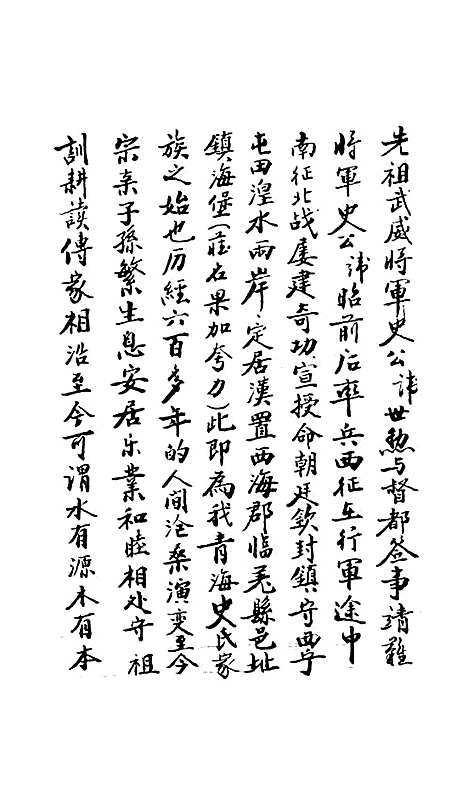 先祖武威將軍史公讳世勲与督都佥事靖難
將軍史公讳昭前后率兵西征在行軍途中
南征北战屡建奇功宣授命朝廷欽封鎮守西宁
屯田湟水兩岸定居漢置西海郡臨羌縣邑址
鎮海堡(莊右果加夸刀)此即為我青海史氏家
族之始也历經六百多年的人间沧桑演变至今
宗亲子孫繁生息安居乐業和睦相处守祖
訓耕读傳家相沿至今可謂水有源木有本